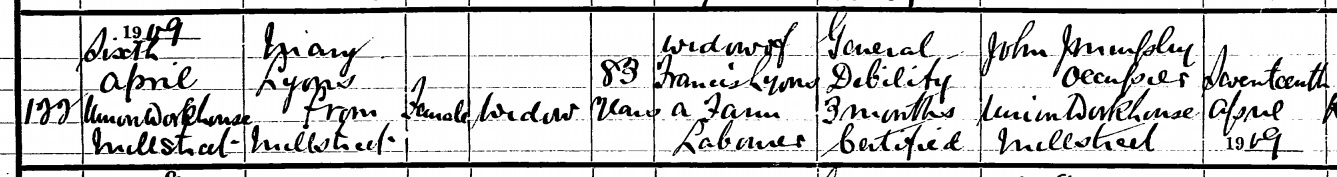 122
1909
Sixth
April
Union Workhouse
Millstreet
Mary
Lyons
from
Millstreet
Female
Widow
83
Years
widow of
Francis Lyons
a Farm
Labourer
General
Debility
3 months
Certified
John
Occupier
Union Workhouse
Millstreet
Seventeenth
April
1909